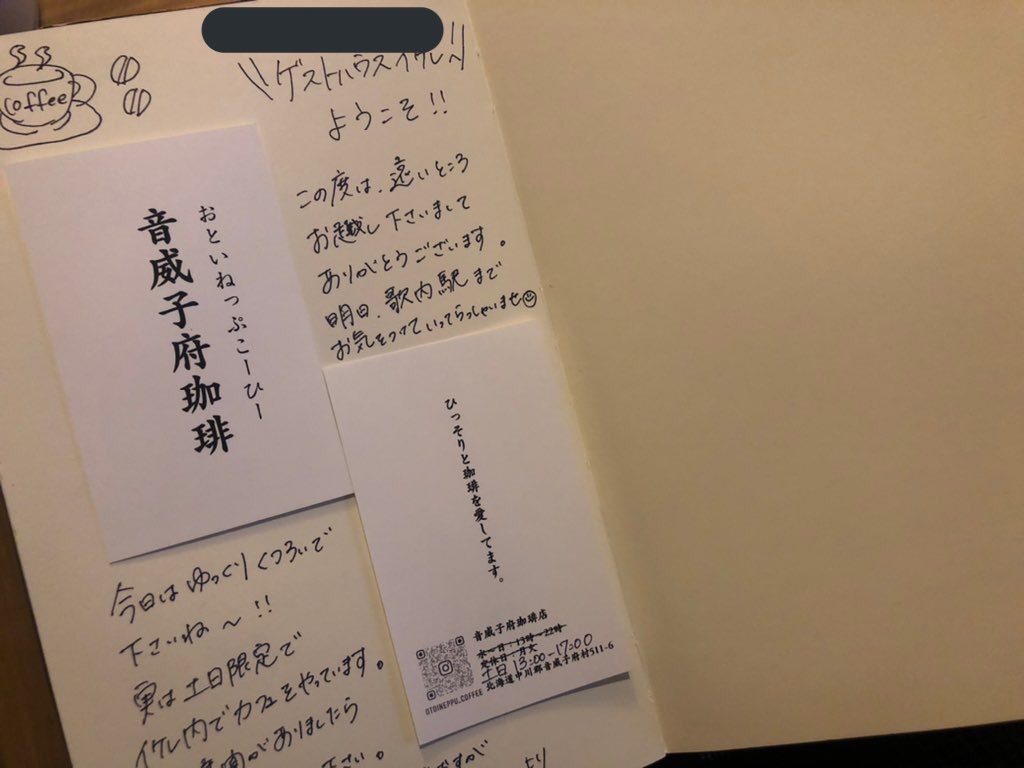 coffee
\\ゲストハウスイケレ//
ようこそ!!
この度は、遠いところ
お越し下さいまして
ありがとうございます。
明日、歌内駅まで
お気をつけていってらっしゃいませ☺
おといねっぷこーひー
音威子府珈琲
ひっそりと珈琲を愛してます。
音威子府珈琲店
水〜日:13時〜22時
定休日:月火
土日 13:00-17:00
北海道中川郡音威子府村511-6
OTOINEPPU.COFFEE
今日はゆっくりくつろいで
下さいね〜!!
実は土日限定で
イケレ内でカフェをやっています。
がありましたら
下さい。
ですが
より